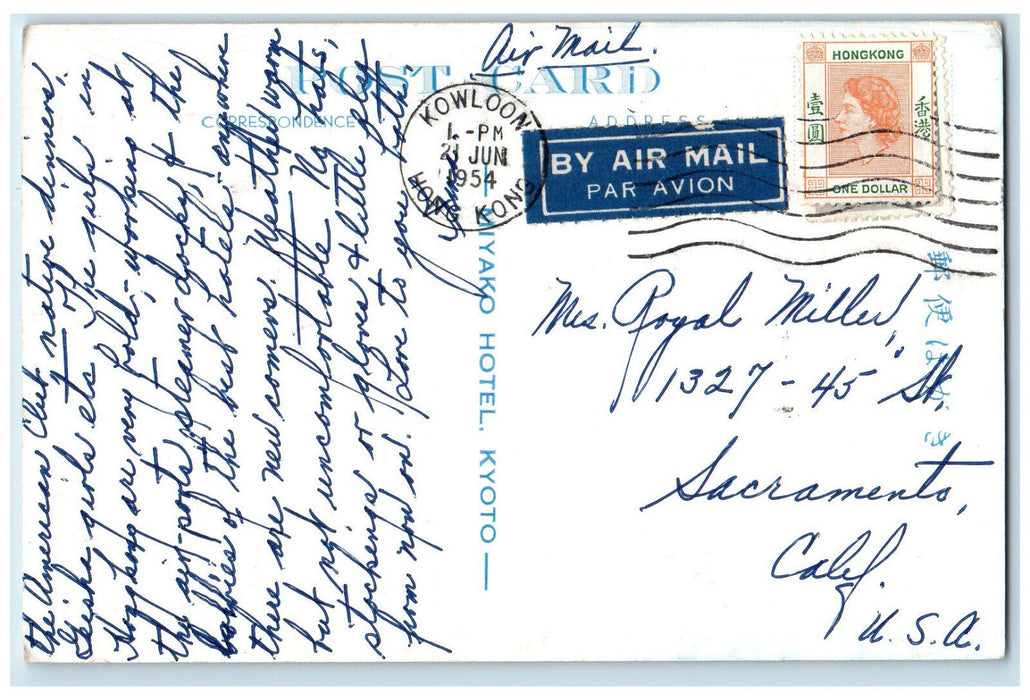 the American Club, native dinners,
Geisha girls etc. The girls in
Hongkong are very bold, working at
the air-ports, steamer docks, & the
lobbies of the best hotels - anywhere
there are new comers. Weather warm
but not uncomfortable. No hats,
stockings or gloves & little sleep
from now on. Love to you both,
POST CARD
Air Mail.
CORRESPONDENCE
ADDRESS
KOWLOON
1 - PM
21 JUN
1954
HONG KONG
BY AIR MAIL
PAR AVION
HONGKONG
壹圓
香港
ONE DOLLAR
MIYAKO HOTEL, KYOTO
郵便はがき
Mrs. Royal Miller,
1327 - 45 St.
Sacramento,
Calif.
U.S.A.